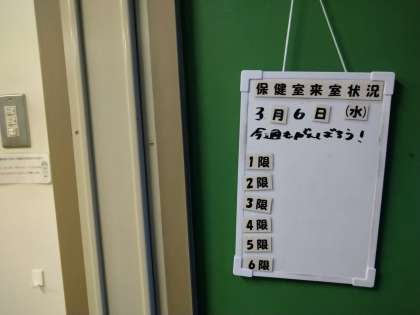 保健室来室状況
3月6日(水)
今週もがんばろう!
1限
2限
3限
4限
5限
6限